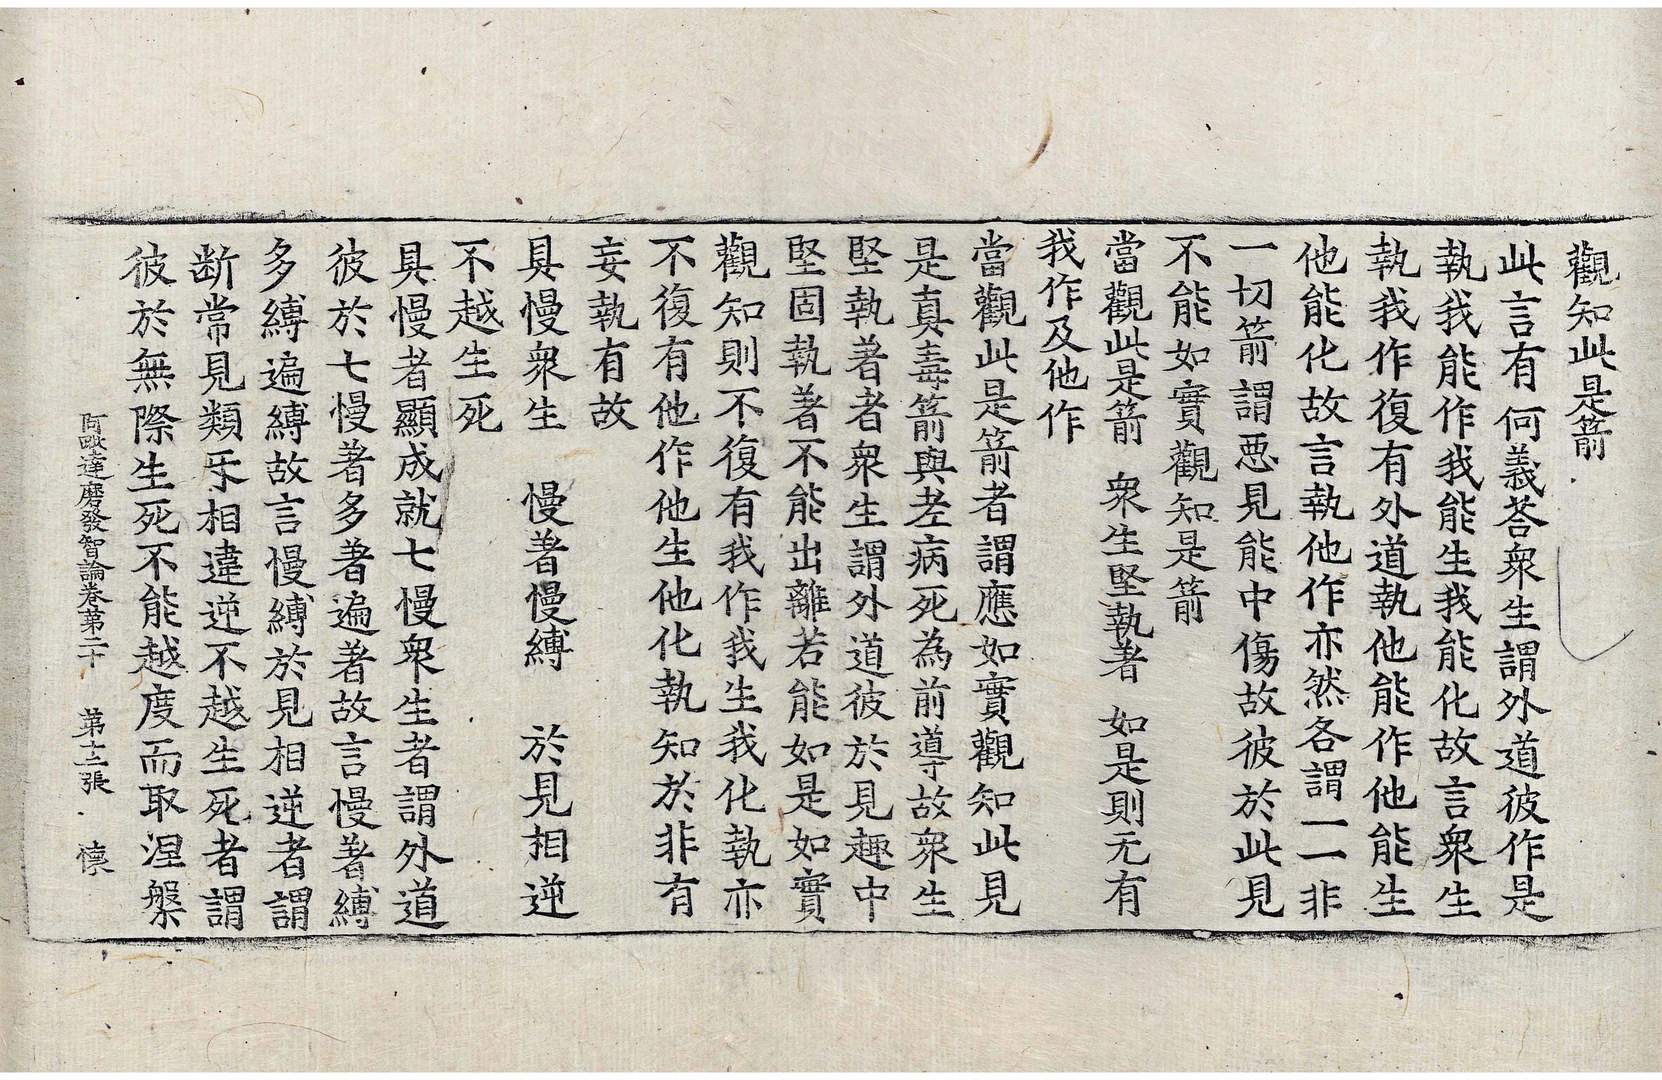 觀知此是箭
此言有何義荅衆生謂外道彼作是
執我能作我能生我能化故言衆生
執我作復有外道執他能作他能生
他能化故言執他作亦然各謂一一非
一切箭謂惡見能中傷故彼於此見
不能如實觀知是箭
當觀此是箭 衆生堅執著 如是則无有
我作及他作
當觀此是箭者謂應如實觀知此見
是真毒箭與老病死為前導故衆生
堅執著者衆生謂外道彼於見趣中
堅固執著不能出離若能如是如實
觀知則不復有我作我生我化執亦
不復有他作他生他化執知於非有
妄執有故
具慢衆生 慢著慢縛 於見相逆
不越生死
具慢者顯成就七慢衆生者謂外道
彼於七慢著多著遍著故言慢著縛
多縛遍縛故言慢縛於見相逆者謂
断常見類㸦相違逆不越生死者謂
彼於無際生死不能越度而取涅槃
阿毗達磨發智論卷第二十 第十二張 懐